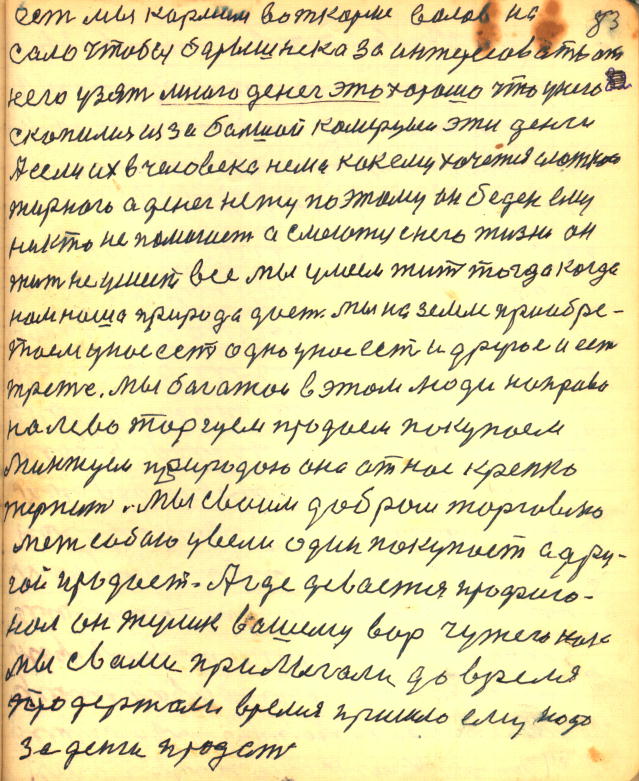 83
ест мы кармим воткорме волов на
сало чтобы барышнека заинтересовать от
него узят много денег это хорошо что унего
скопилия из за большой комерции эти денги
А если их вчеловека нема как ему хочется
жирного а денег нету поэтому он беден ему
никто не помогает а смогому снего жизни он
жит не умеит все мы умеем жит тогда когда
нам наша природа дает. мы на земле приобре-
таем унас ест одно унас ест и другое и ест
трете. мы богатои в этом люди направо
налево торгуем продаем покупаем
минжуем природою она от нас крепко
терпит. мы своим добром торговлю
меж собою увели один покупает а дру-
гой продает. А где девается професо-
нал он жулик вашему вор чужего как
мы свами примечали до время
продержали время пришло ему надо
за денги продат